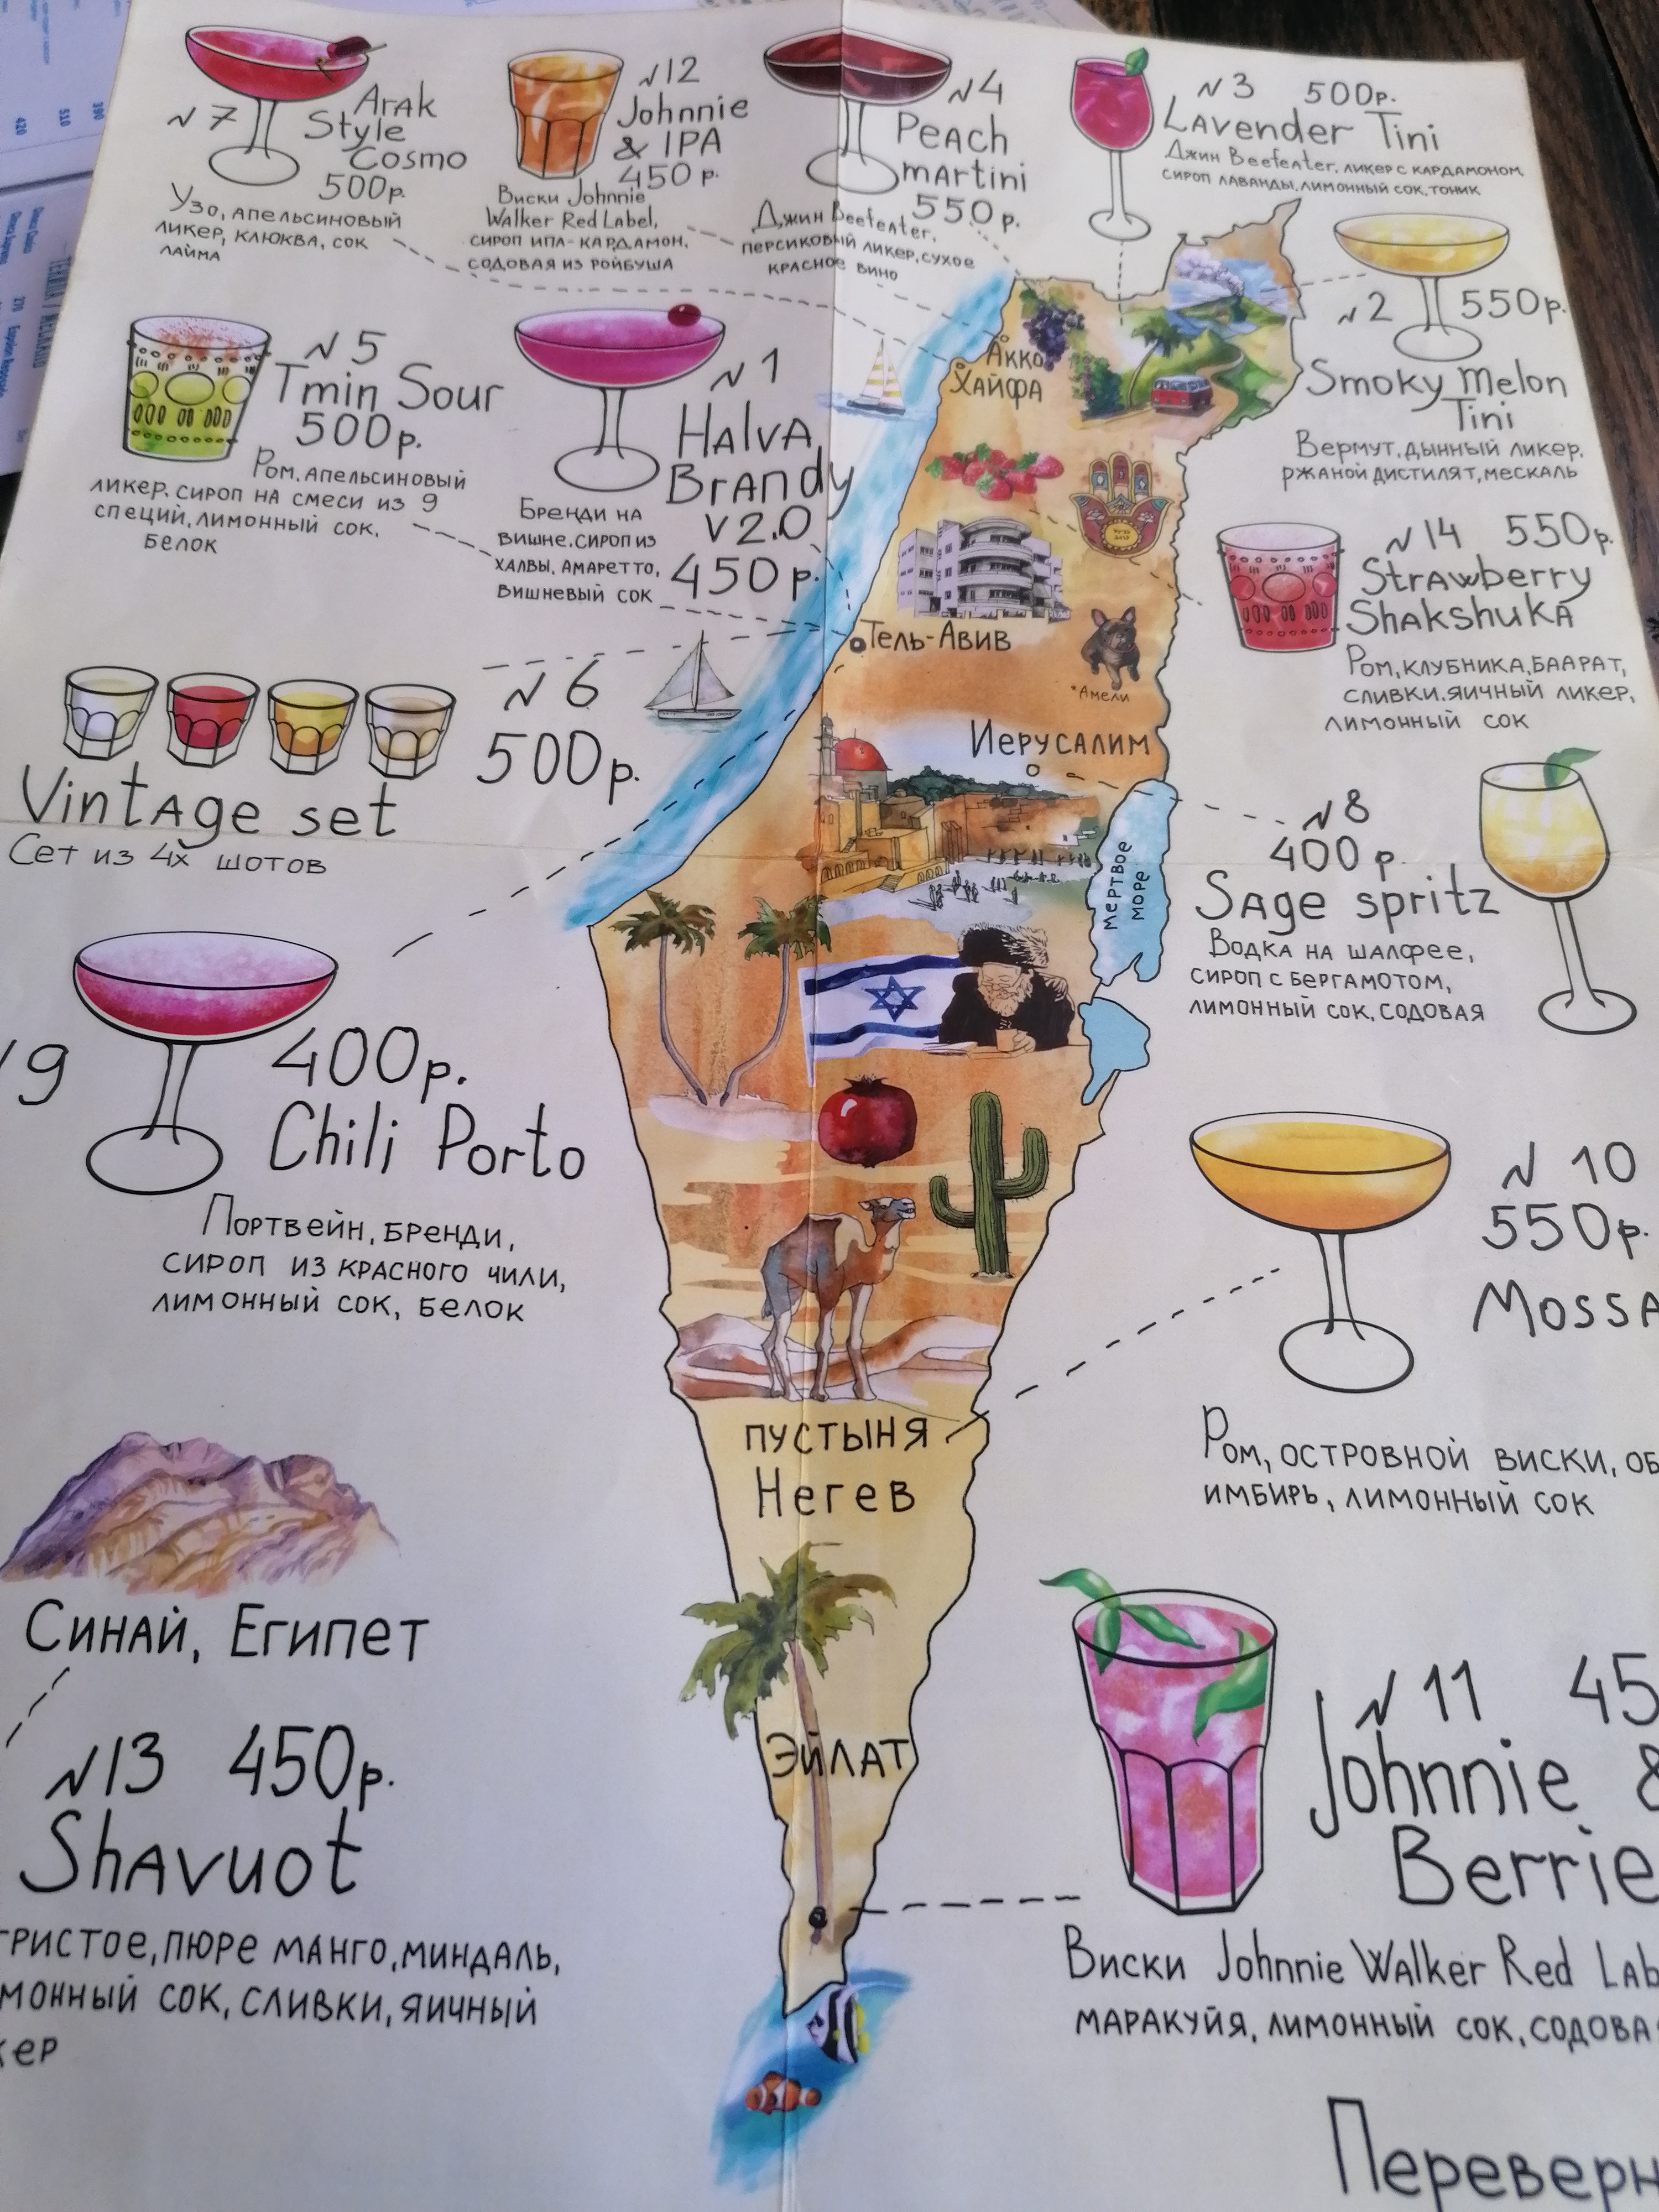 N7
Arak
Style
Cosmo
500р.
Узо, апельсиновый
ликер, клюква, сок
лайма
N12
Johnnie
& IPA
450 р.
Виски Johnnie
Walker Red Label,
сироп ипа-кардамон,
содовая из ройбуша
N4
Peach
martini
550 р.
Джин Beefeater,
персиковый ликер, сухое
красное вино
N3 500р.
Lavender Tini
Джин Beefeater, ликер с кардамоном,
сироп лаванды, лимонный сок, тоник
N2 550р.
Smoky Melon
Tini
Вермут, дынный ликер,
ржаной дистилят, мескаль
N5
Tmin Sour
500р.
Ром, апельсиновый
ликер, сироп на смеси из 9
специй, лимонный сок,
белок
N1
Halva
Brandy
V2.0
450 р.
Бренди на
вишне, сироп из
халвы, амаретто,
вишневый сок
Акко
Хайфа
Тель-Авив
*Амели
Иерусалим
Мертвое
море
N14 550р.
Strawberry
Shakshuka
Ром, клубника, баарат,
сливки, яичный ликер,
лимонный сок
N6
500р.
Vintage set
Сет из 4х шотов
N8
400 р.
Sage spritz
Водка на шалфее,
сироп с бергамотом,
лимонный сок, содовая
9
400р.
Chili Porto
Портвейн, бренди,
сироп из красного чили,
лимонный сок, белок
N 10
550р.
Mossa
Ром, островной виски, об
имбирь, лимонный сок
пустыня
Негев
Синай, Египет
N13 450р.
Shavuot
гристое, пюре манго, миндаль,
монный сок, сливки, яичный
кер
Эйлат
N11 45
Johnnie &
Berrie
Виски Johnnie Walker Red Lab
маракуйя, лимонный сок, содова
Переверн